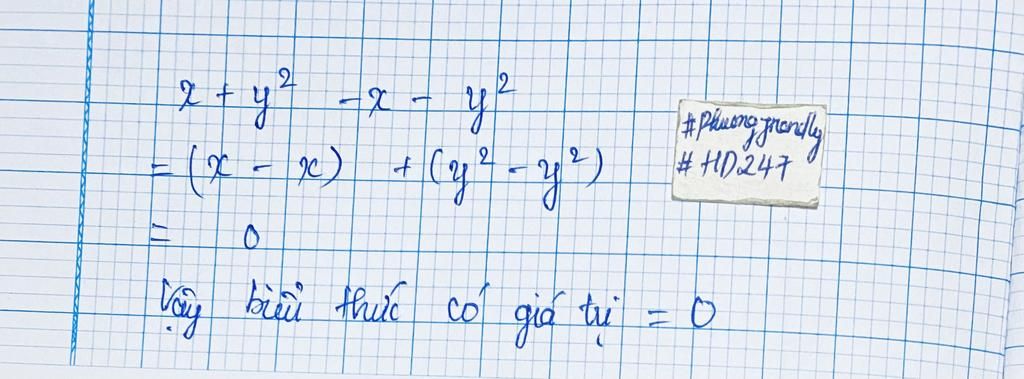 x + y² - x - y²
= (x - x) + (y² - y²)
= 0
Vậy biểu thức có giá tṛi = 0
#Phuongfrandly
#HD247